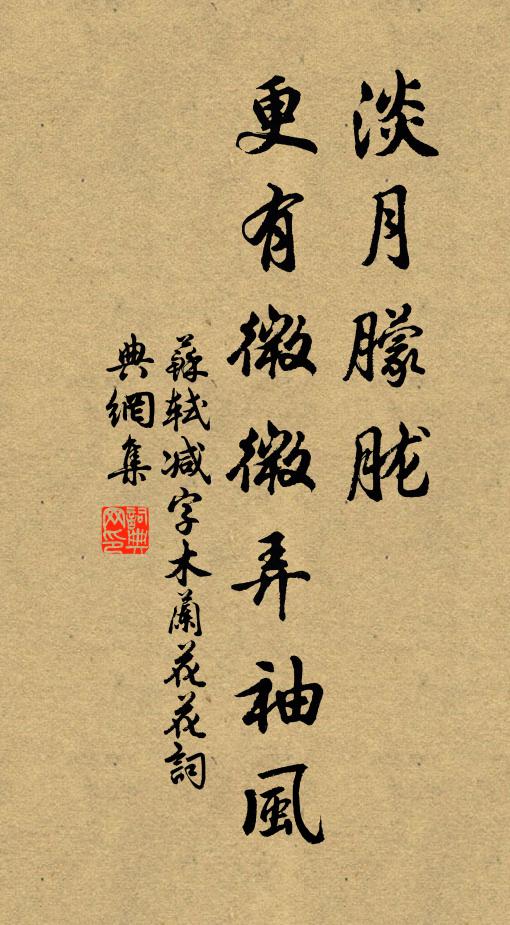 淡月朦胧
更有微微弄袖風
蘇軾减字木蘭花花詞
典網集
詞典网印